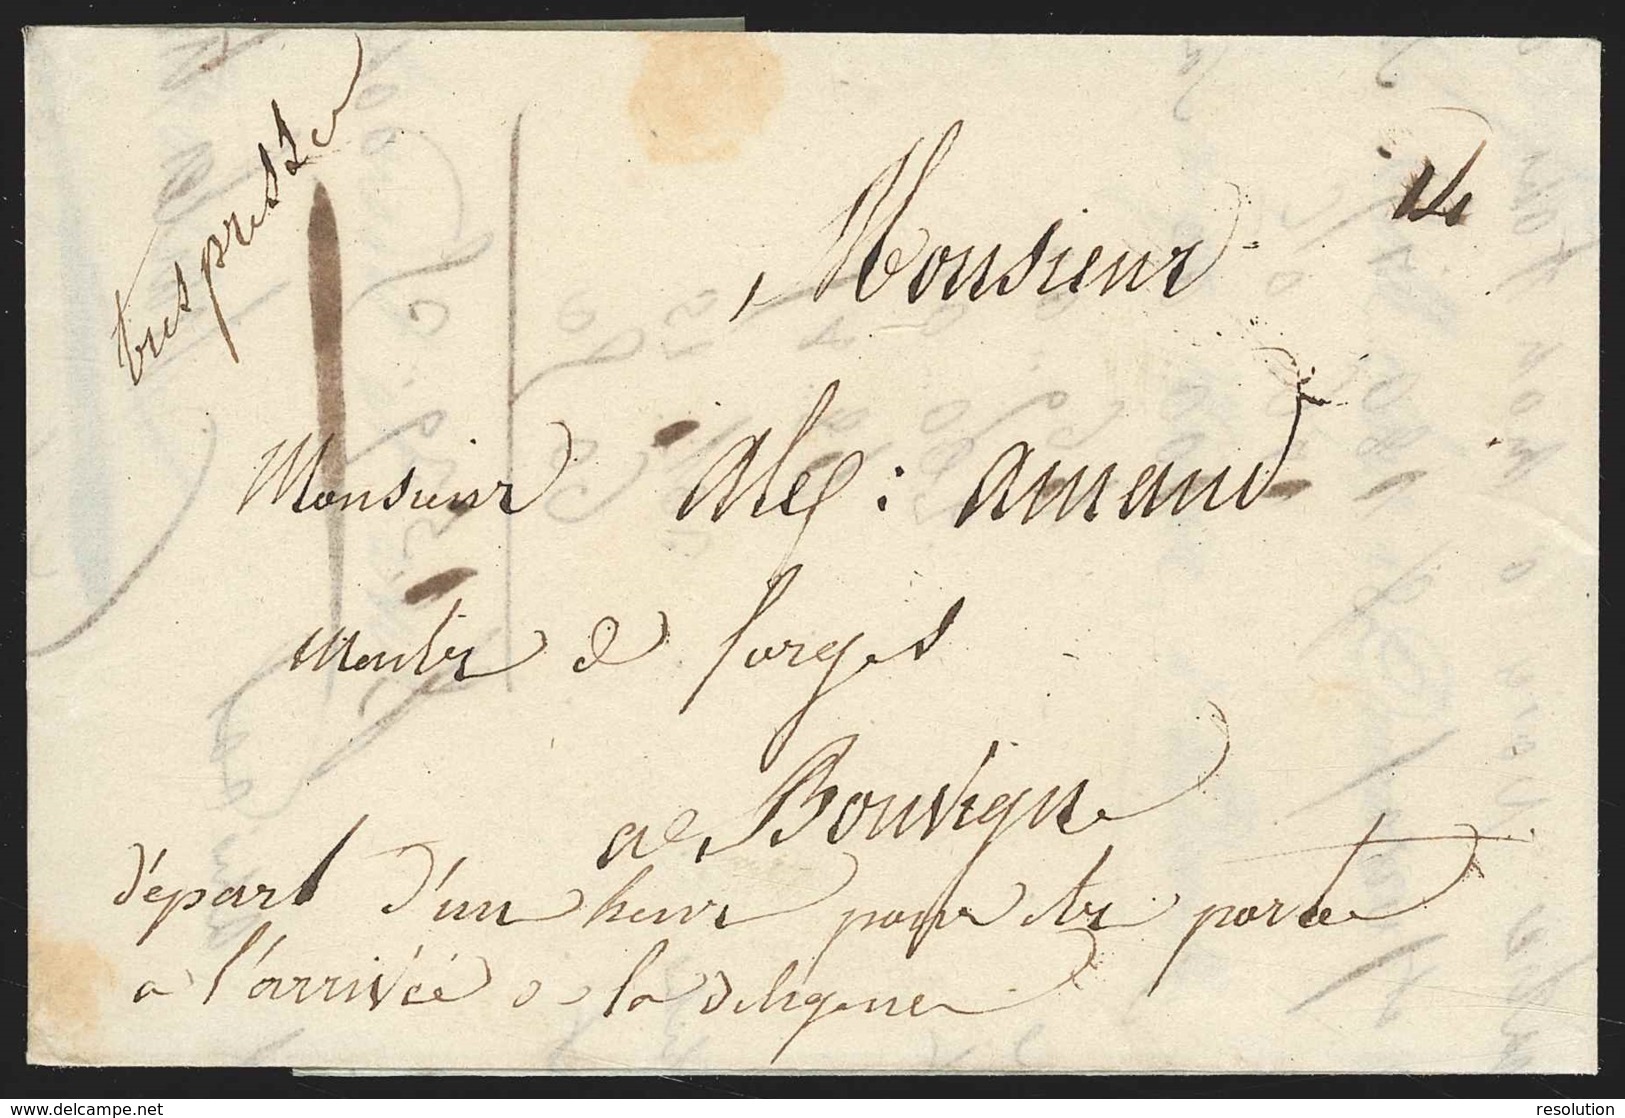 tres pressee
Monsieur
Monsieur alex: amand
Maitre de forges
a Bouvigne
départ d'un heure pour etre portee
a l'arrivée de la diligence
delcampe.net
resolution